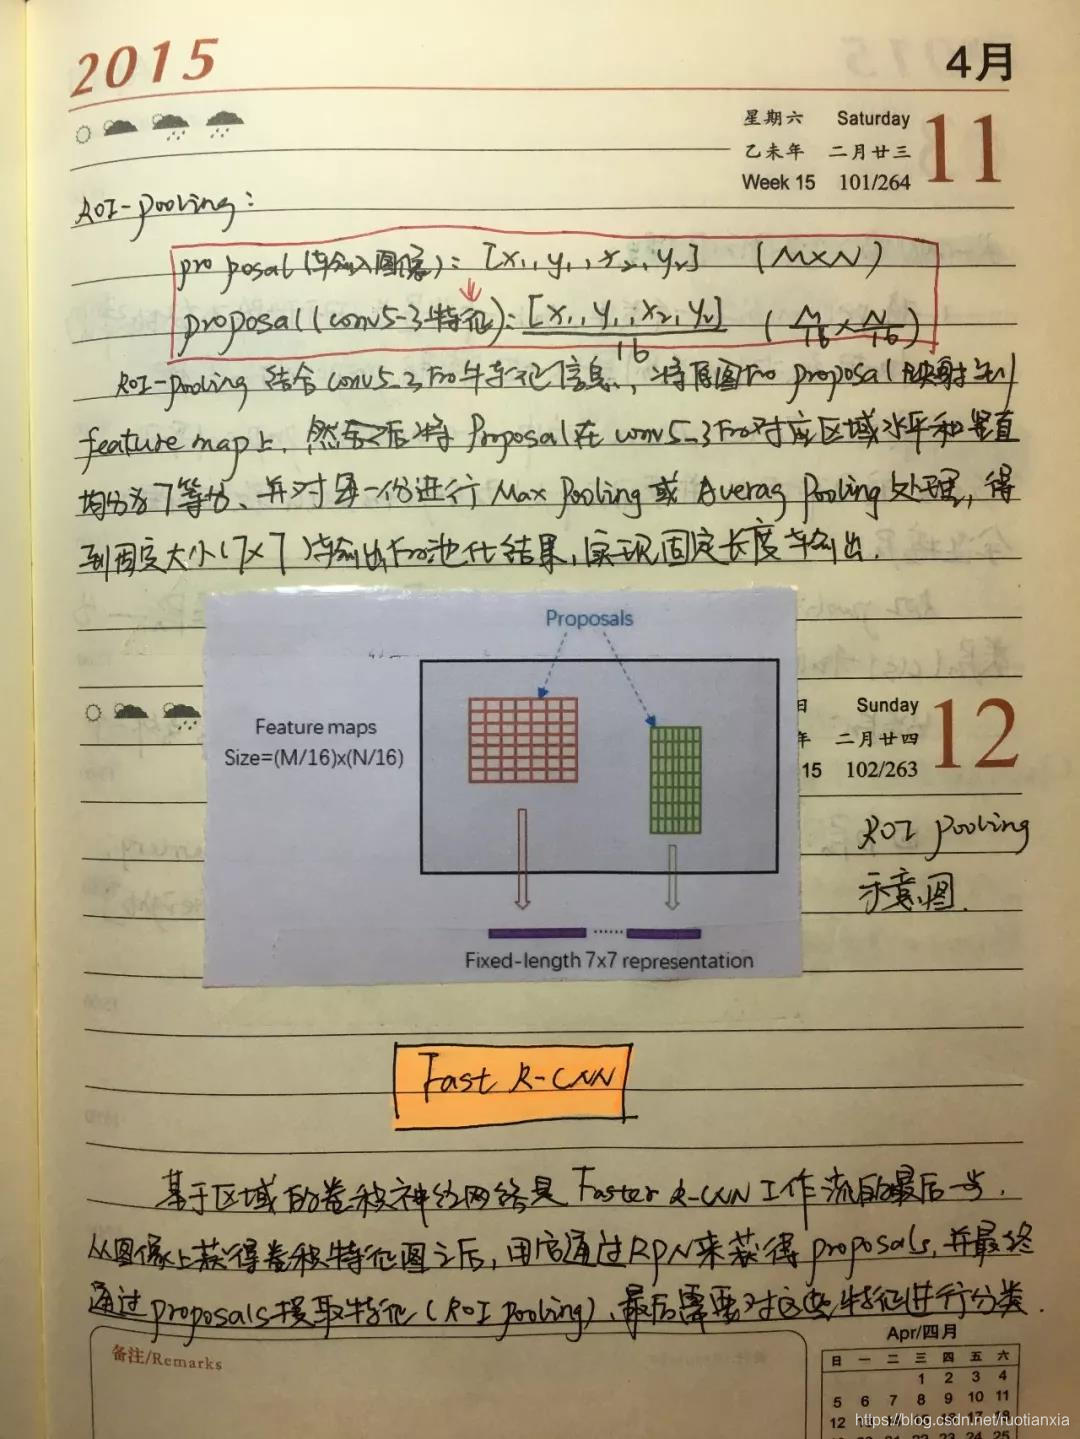 2015
4月
星期六 Saturday 11
乙未年 二月廿三
Week 15 101/264
ROI-pooling:
proposal(输入图像): [x1, y1, x2, y2] (M×N)
proposal(conv5-3特征): [x1, y1, x2, y2]/16 (M/16×N/16)
ROI-pooling 结合conv5_3的特征信息, 将原图的 proposal 映射到
feature map上, 然后之后将 Proposal 在 conv5_3的对应区域水平和竖直
均分为7等分、并对每一份进行 Max Pooling 或 Averag Pooling 处理, 得
到固定大小(7×7)输出的池化结果, 实现固定长度输出.
Proposals
Feature maps
Size=(M/16)x(N/16)
......
Fixed-length 7x7 representation
日 Sunday 12
年 二月廿四
15 102/263
ROI pooling
示意图.
Fast R-CNN
基于区域的卷积神经网络是 Faster R-CNN 工作流的最后一步.
从图像上获得卷积特征图之后, 用它通过RPN来获得 proposals, 并最终
通过 proposals 提取特征 (ROI pooling), 最后需要对这些特征进行分类.
备注/Remarks
Apr/四月
日 一 二 三 四 五 六
1 2 3 4
5 6 7 8 9 10 11
12
https://blog.csdn.net/ruotianxia